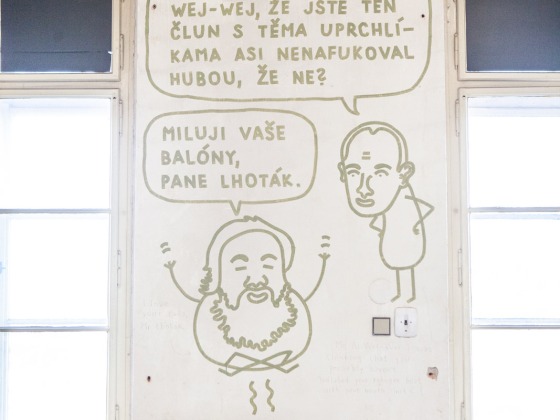 WEJ-WEJ, ŽE JSTE TEN
ČLUN S TĚMA UPRCHLÍ-
KAMA ASI NENAFUKOVAL
HUBOU, ŽE NE?
MILUJI VAŠE
BALÓNY,
PANE LHOTÁK.